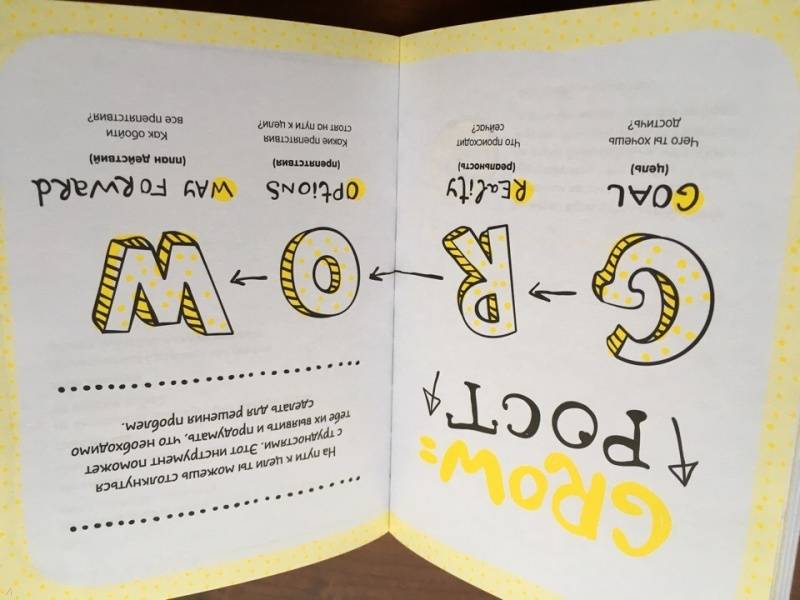 GROW:
РОСТ
G
R
O
W
GOAL
(цель)
Чего ты хочешь
достичь?
REality
(реальность)
Что происходит
сейчас?
На пути к цели ты можешь столкнуться
с трудностями. Этот инструмент поможет
тебе их выявить и продумать, что необходимо
сделать для решения проблем.
OPtiONS
(препятствия)
Какие препятствия
стоят на пути к цели?
WAY FORWARD
(план действий)
Как обойти
все препятствия?